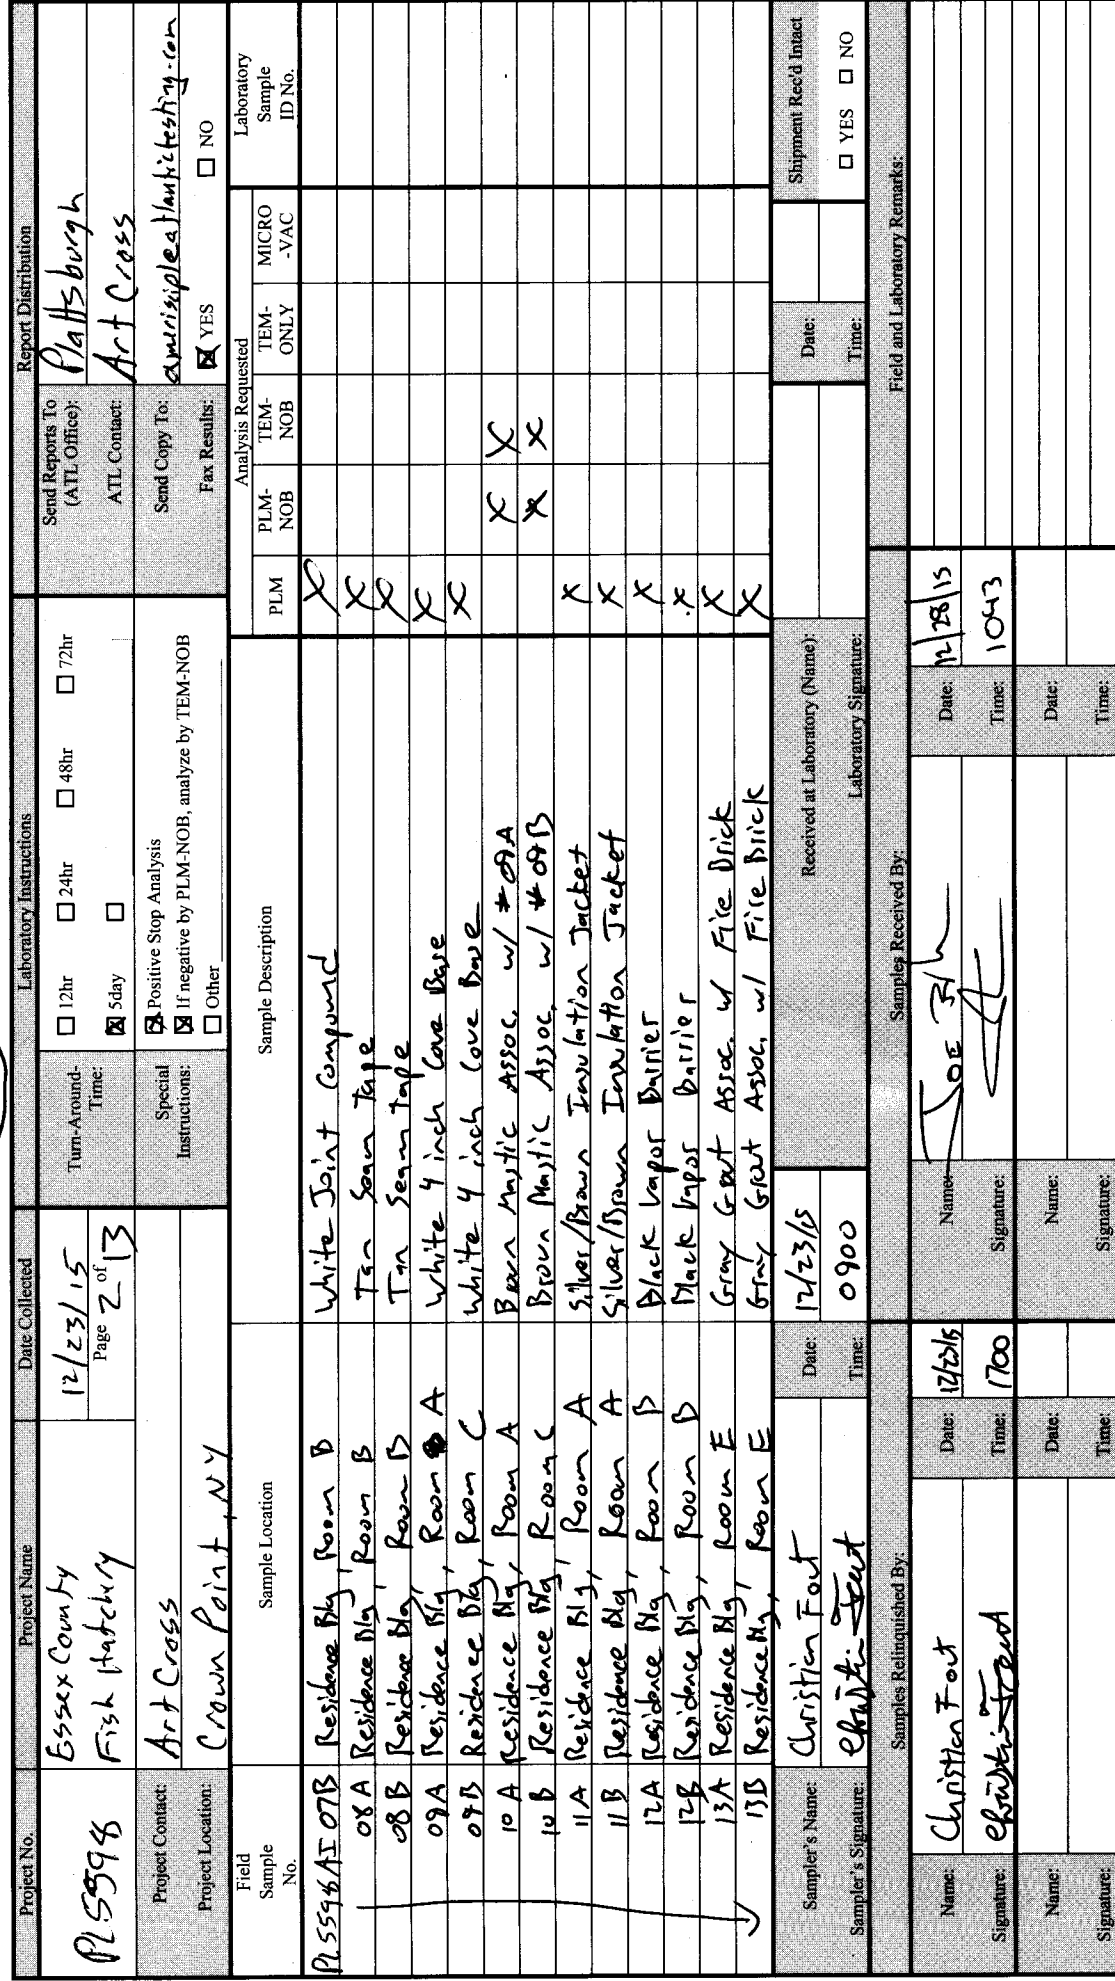 Project No.
Project Name
Date Collected
Laboratory Instructions
Report Distribution
PL5598
Essex County
Fish Hatchery
12/23/15
Page 2 of 13
Turn-Around-
Time:
☐ 12hr ☐ 24hr ☐ 48hr ☐ 72hr
☒ 5day ☐
Send Reports To
(ATL Office):
Plattsburgh
ATL Contact:
Art Cross
Project Contact:
Art Cross
Project Location:
Crown Point, NY
Special
Instructions:
☒ Positive Stop Analysis
☒ If negative by PLM-NOB, analyze by TEM-NOB
☐ Other
Send Copy To:
atlantictesting.com
Fax Results:
☒ YES ☐ NO
Field
Sample
No.
Sample Location
Sample Description
Analysis Requested
PLM
PLM-
NOB
TEM-
NOB
TEM-
ONLY
MICRO
-VAC
Laboratory
Sample
ID No.
PL5598AI07B Residence Bldg, Room B White Joint Compound X
08A Residence Bldg, Room B Tan Seam Tape X
08B Residence Bldg, Room B Tan Seam tape X
09A Residence Bldg, Room A White 4 inch Cove Base X
09B Residence Bldg, Room C White 4 inch Cove Base X
10A Residence Bldg, Room A Brown Mastic Assoc. w/ #09A X X
10B Residence Bldg, Room C Brown Mastic Assoc. w/ #09B X X
11A Residence Bldg, Room A Silver/Brown Insulation Jacket X
11B Residence Bldg, Room A Silver/Brown Insulation Jacket X
12A Residence Bldg, Room B Black Vapor Barrier X
12B Residence Bldg, Room B Black Vapor Barrier X
13A Residence Bldg, Room E Gray Grout Assoc. w/ Fire Brick X
13B Residence Bldg, Room E Gray Grout Assoc. w/ Fire Brick X
Sampler's Name:
Christian Fout
Date:
12/23/15
Received at Laboratory (Name):
Date:
Shipment Rec'd Intact
Sampler's Signature:
Christian Fout
Time:
0900
Laboratory Signature:
Time:
☐ YES ☐ NO
Samples Relinquished By:
Samples Received By:
Field and Laboratory Remarks:
Name:
Christian Fout
Date:
12/23/15
Name:
JOE
Date:
12/28/15
Signature:
Christian Fout
Time:
1700
Signature:
Time:
1043
Name:
Date:
Name:
Date:
Signature:
Time:
Signature:
Time: